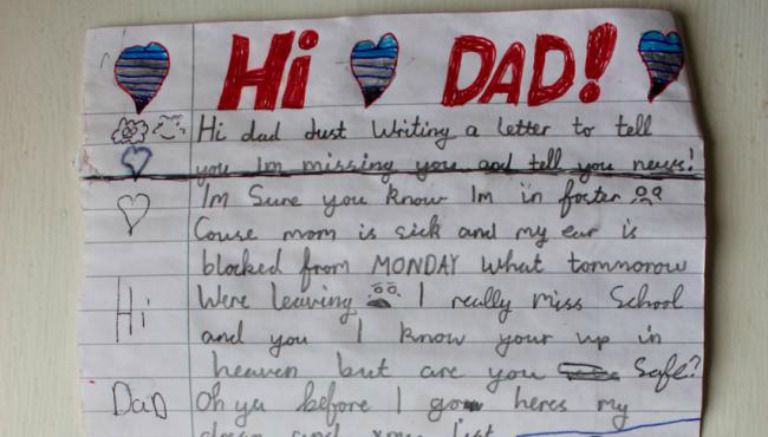 Hi DAD!
Hi dad Just Writing a letter to tell
you Im missing you and tell you news!
Im Sure you know Im in foster
Couse mom is sick and my ear is
blocked from MONDAY what tommorow
Were leaving I really miss School
Hi
and you I know your up in
heaven but are you Safe?
Dad
Oh ya before I go heres my
dream and xmas list